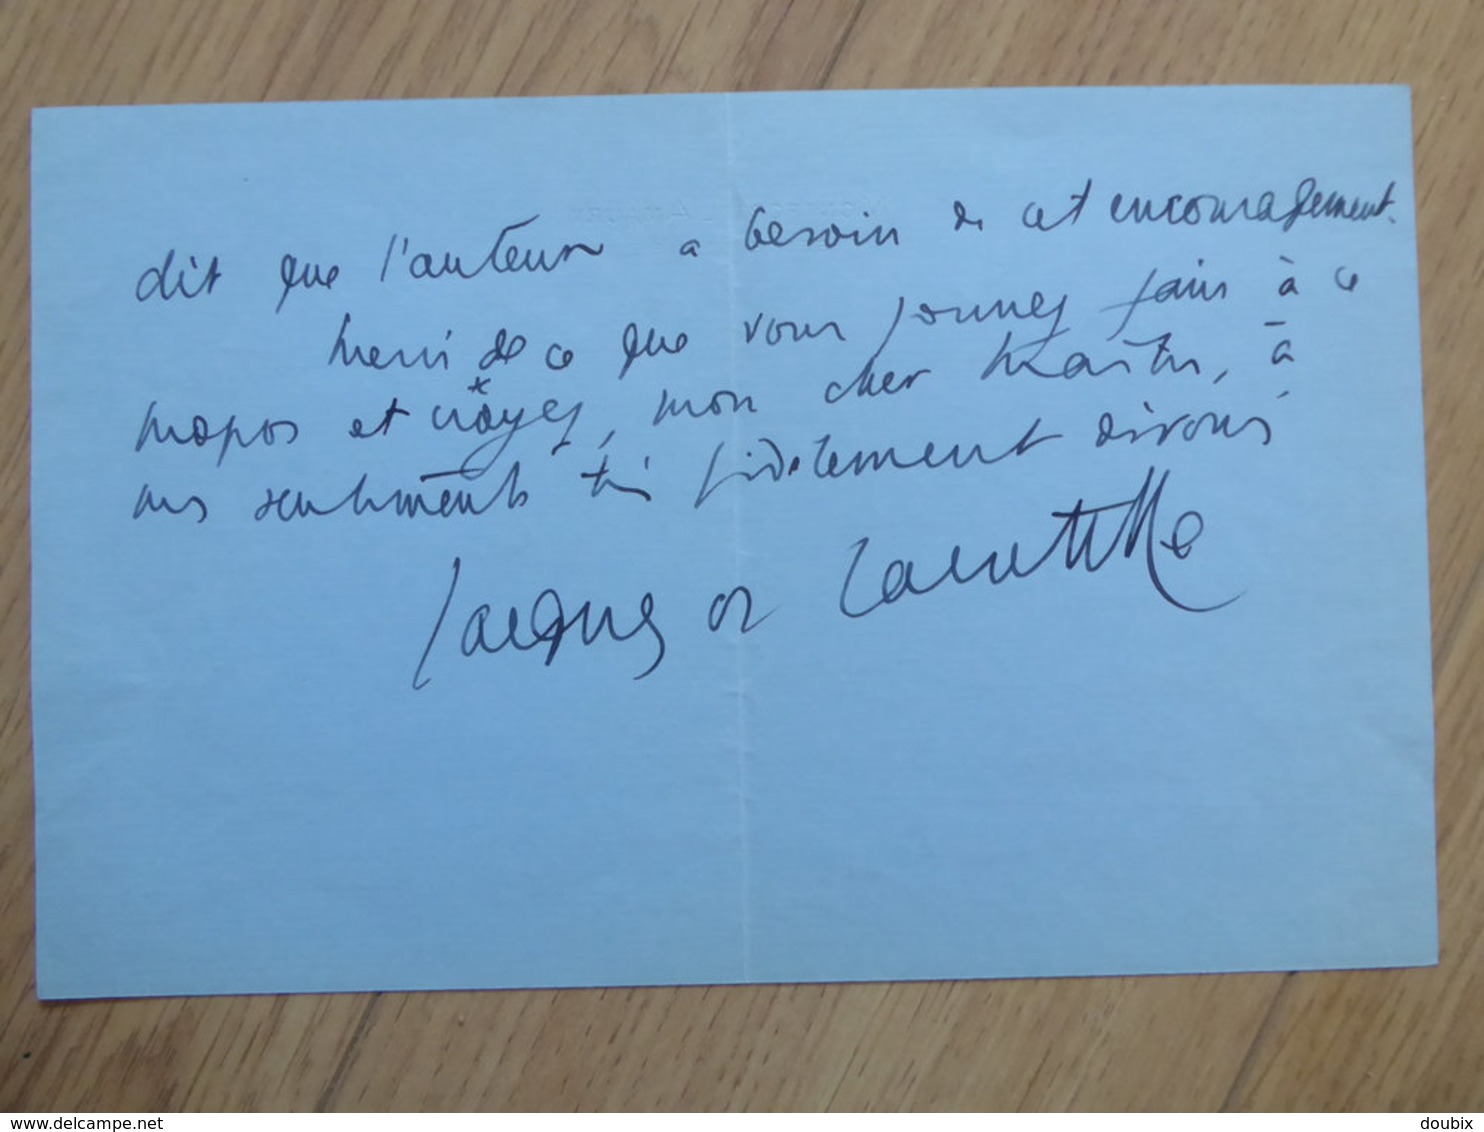 dit que l'auteur a besoin de cet encouragement.
Merci de ce que vous pourrez faire à ce
propos et croyez, mon cher Maître, à
mes sentiments très fidèlement dévoués
Jacques de Lacretelle
delcampe.net
doubix